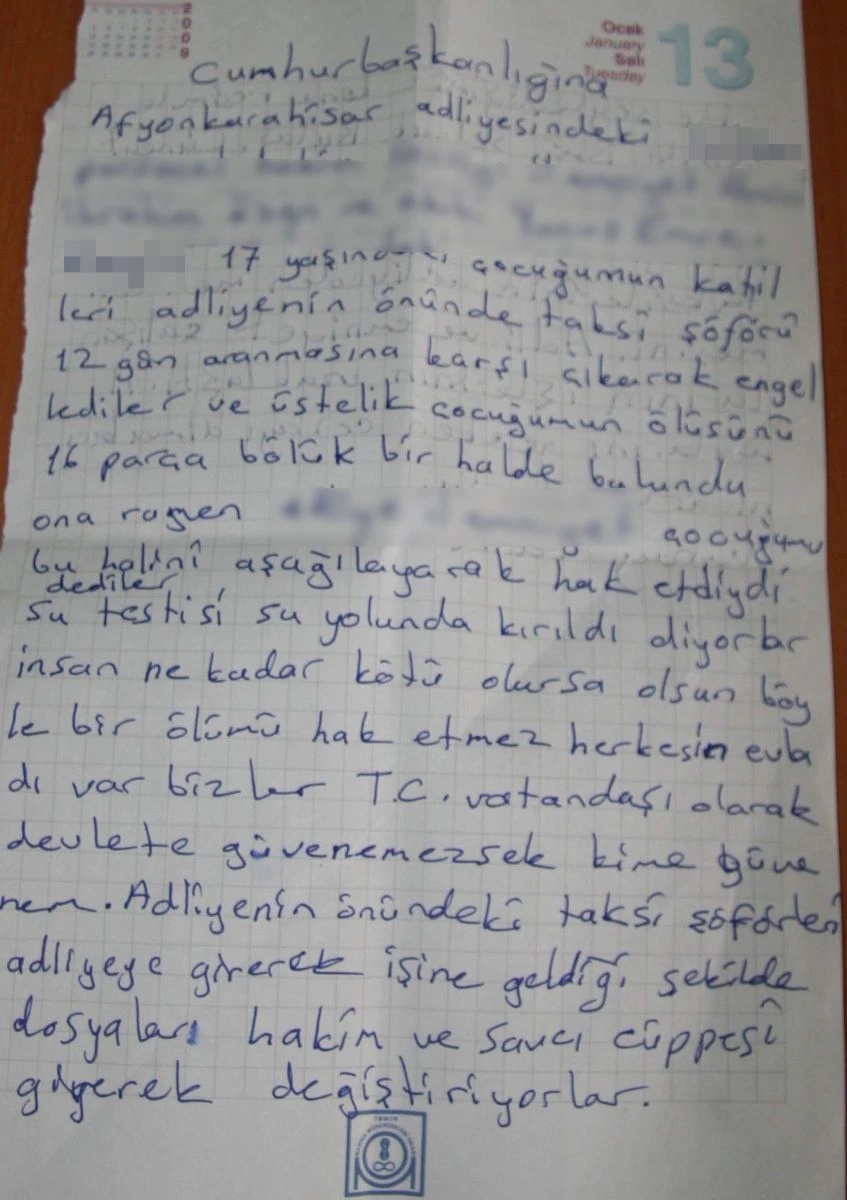 2009
Ocak
January
Salı
Tuesday
13
Cumhurbaşkanlığına
Afyonkarahisar adliyesindeki
17 yaşındaki çocuğumun katil
leri adliyenin önünde taksi şöförü
12 gün aranmasına karşı çıkarak engel
lediler ve üstelik çocuğumun ölüsünü
16 parça bölük bir halde bulundu
ona rağmen çocuğumu
bu halini aşağılayarak hak etdiydi
dediler
su testisi su yolunda kırıldı diyorlar
insan ne kadar kötü olursa olsun böy
le bir ölümü hak etmez herkesin evla
dı var bizler T.C. vatandaşı olarak
devlete güvenemezsek kime güve
nem. Adliyenin önündeki taksi şöförleri
adliyeye girerek işine geldiği şekilde
dosyaları hakim ve savcı cüppesi
giyerek değiştiriyorlar.
TMMOB